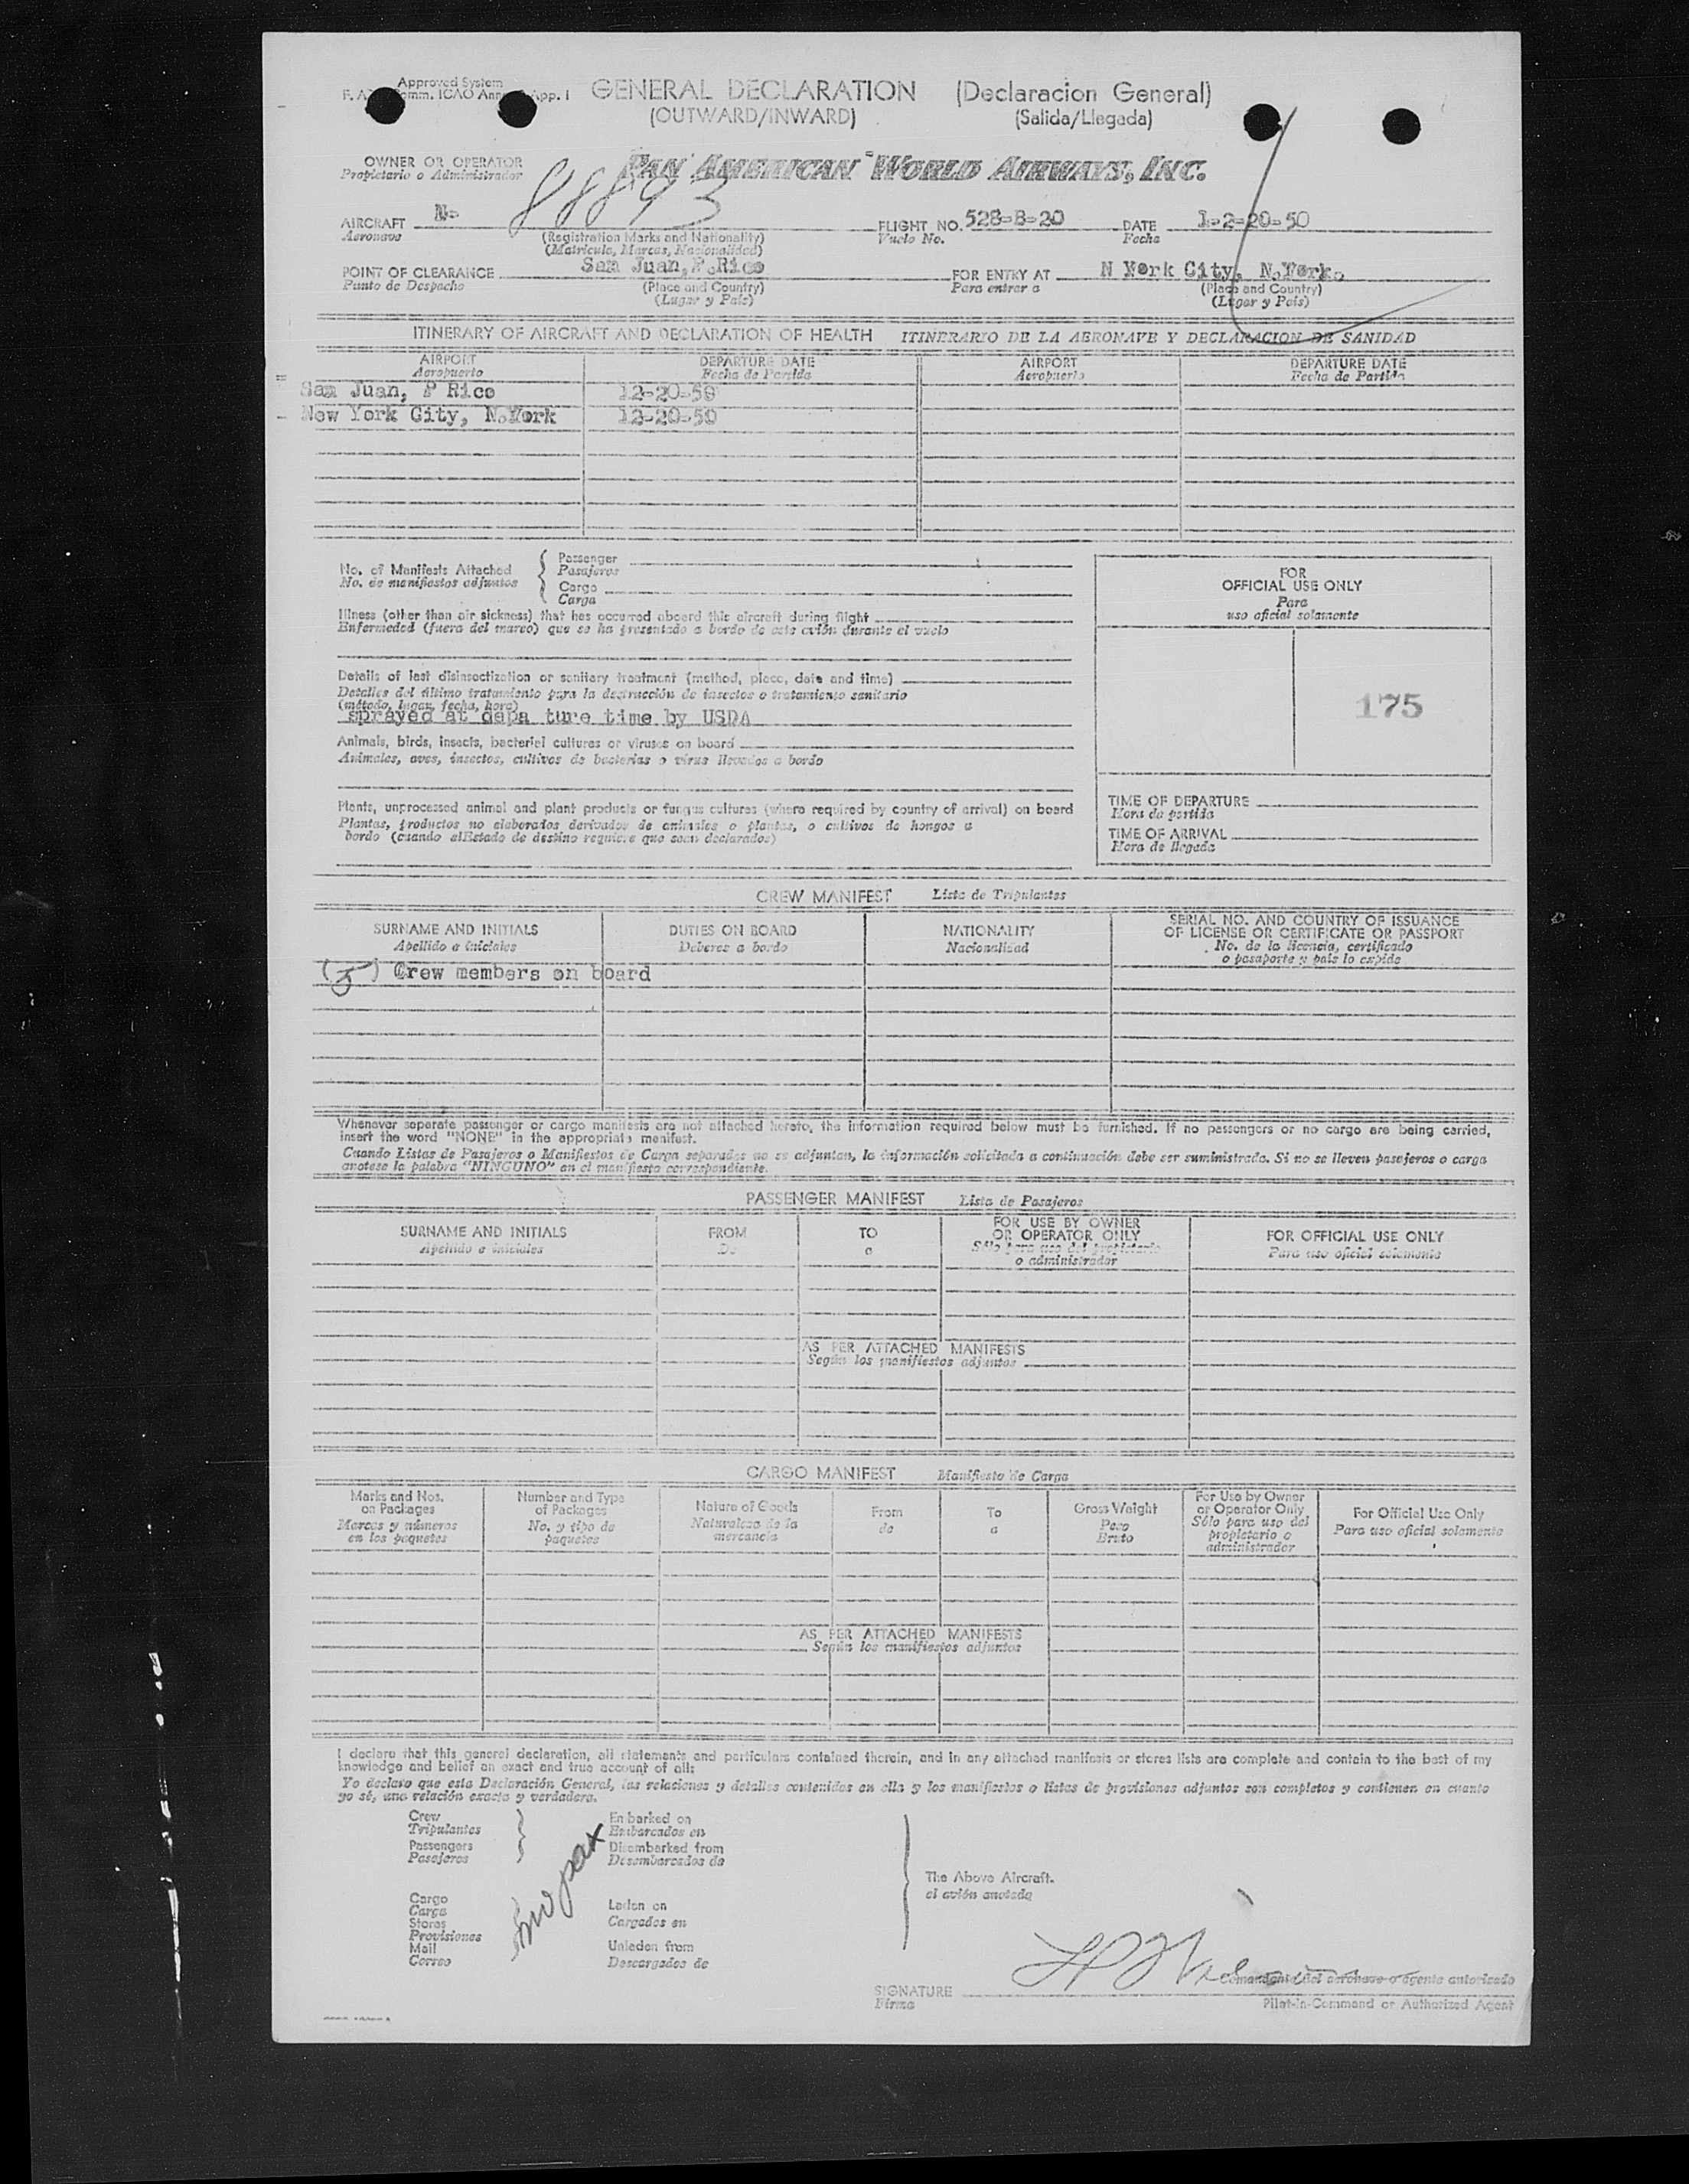 Approved System
GENERAL DECLARATION (Declaracion General)
(OUTWARD/INWARD) (Salida/Llegada)
OWNER OR OPERATOR PAN AMERICAN WORLD AIRWAYS, INC.
Propietario o Administrador
AIRCRAFT N- 88893 FLIGHT NO. 528-8-20 DATE 1-2-20-50
Aeronave (Registration Marks and Nationality) Vuelo No. Fecha
(Matricula, Marcas, Nacionalidad)
POINT OF CLEARANCE San Juan, P.Rico FOR ENTRY AT N York City, N.York.
Punto de Despacho (Place and Country) Para entrar a (Place and Country)
(Lugar y Pais) (Lugar y Pais)
ITINERARY OF AIRCRAFT AND DECLARATION OF HEALTH ITINERARIO DE LA AERONAVE Y DECLARACION DE SANIDAD
AIRPORT DEPARTURE DATE AIRPORT DEPARTURE DATE
Aeropuerto Fecha de Partida Aeropuerto Fecha de Partida
San Juan, P Rico 12-20-50
New York City, N.York 12-20-50
No. of Manifests Attached Passenger
No. de manifiestos adjuntos Pasajeros
Cargo
Carga
Illness (other than air sickness) that has occurred aboard this aircraft during flight
Enfermedad (fuera del mareo) que se ha presentado a bordo de este avión durante el vuelo
Details of last disinsectization or sanitary treatment (method, place, date and time)
Detalles del último tratamiento para la destrucción de insectos o tratamiento sanitario
(método, lugar, fecha, hora)
sprayed at depa ture time by USDA
Animals, birds, insects, bacterial cultures or viruses on board
Animales, aves, insectos, cultivos de bacterias o virus llevados a bordo
Plants, unprocessed animal and plant products or fungus cultures (where required by country of arrival) on board
Plantas, productos no elaborados derivados de animales o plantas, o cultivos de hongos a
bordo (cuando elEstado de destino requiere que sean declarados)
FOR
OFFICIAL USE ONLY
Para
uso oficial solamente
175
TIME OF DEPARTURE
Hora de partida
TIME OF ARRIVAL
Hora de llegada
CREW MANIFEST Lista de Tripulantes
SURNAME AND INITIALS DUTIES ON BOARD NATIONALITY SERIAL NO. AND COUNTRY OF ISSUANCE
OF LICENSE OR CERTIFICATE OR PASSPORT
Apellido e iniciales Deberes a bordo Nacionalidad No. de la licencia, certificado
o pasaporte y pais lo expide
(5) Crew members on board
Whenever separate passenger or cargo manifests are not attached hereto, the information required below must be furnished. If no passengers or no cargo are being carried,
insert the word "NONE" in the appropriate manifest.
Cuando Listas de Pasajeros o Manifiestos de Carga separados no se adjuntan, la información solicitada a continuación debe ser suministrada. Si no se lleven pasajeros o carga
anotese la palabra "NINGUNO" en el manifiesto correspondiente.
PASSENGER MANIFEST Lista de Pasajeros
SURNAME AND INITIALS FROM TO FOR USE BY OWNER
OR OPERATOR ONLY FOR OFFICIAL USE ONLY
Apellido e iniciales De a Sólo para uso del propietario
o administrador Para uso oficial solamente
AS PER ATTACHED MANIFESTS
Según los manifiestos adjuntos
CARGO MANIFEST Manifiesto de Carga
Marks and Nos. on Packages Number and Type of Packages Nature of Goods From To Gross Weight For Use by Owner or Operator Only For Official Use Only
Marcas y números en los paquetes No. y tipo de paquetes Naturaleza de la mercancía de a Peso Bruto Sólo para uso del propietario o administrador Para uso oficial solamente
AS PER ATTACHED MANIFESTS
Según los manifiestos adjuntos
I declare that this general declaration, all statements and particulars contained therein, and in any attached manifests or stores lists are complete and contain to the best of my
knowledge and belief an exact and true account of all:
Yo declaro que esta Declaración General, las relaciones y detalles contenidos en ella y los manifiestos o listas de provisiones adjuntos son completos y contienen en cuanto
yo sé, una relación exacta y verdadera.
Crew Embarked on
Tripulantes Embarcados en
Passengers Disembarked from
Pasajeros Desembarcados de
no pax
The Above Aircraft.
el avión anotado
Cargo Laden on
Carga Cargados en
Stores
Provisiones
Mail Unladen from
Correo Descargados de
Comandante del aeronave o agente autorizado
SIGNATURE
Firma Pilot-in-Command or Authorized Agent